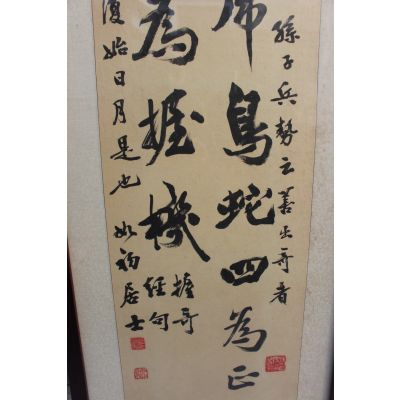 孫子兵勢云善出奇者
虎鳥蛇四為正
為握機
握奇
經句
復始日月是也
居士